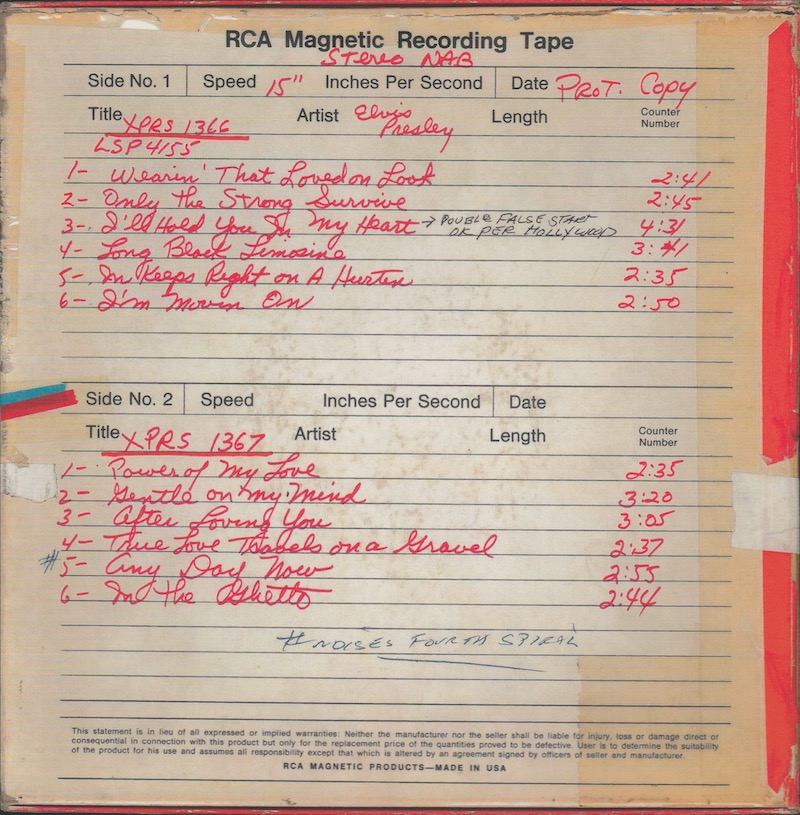 RCA Magnetic Recording Tape
Stereo NAB
Side No. 1 Speed 15" Inches Per Second Date PROT. Copy
Title XPRS 1366 Artist Elvis Presley Length Counter Number
LSP 4155
1- Wearin' That Loved on Look 2:41
2- Only the Strong Survive 2:45
3- I'll Hold You In My Heart → DOUBLE FALSE START OK PER HOLLYWOOD 4:31
4- Long Black Limosine 3:41
5- In Keeps Right on A Hurten 2:35
6- I'm Movin On 2:50
Side No. 2 Speed Inches Per Second Date
Title XPRS 1367 Artist Length Counter Number
1- Power of My Love 2:35
2- Gentle on my mind 3:20
3- After Loving You 3:05
4- True Love Travels on a Gravel 2:37
# 5- Any Day Now 2:55
6- In the Ghetto 2:44
# NOISES FOURTH SPIRAL
This statement is in lieu of all expressed or implied warranties: Neither the manufacturer nor the seller shall be liable for injury, loss or damage direct or
consequential in connection with this product but only for the replacement price of the quantities proved to be defective. User is to determine the suitability
of the product for his use and assumes all responsibility except that which is altered by an agreement signed by officers of seller and manufacturer.
RCA MAGNETIC PRODUCTS—MADE IN USA